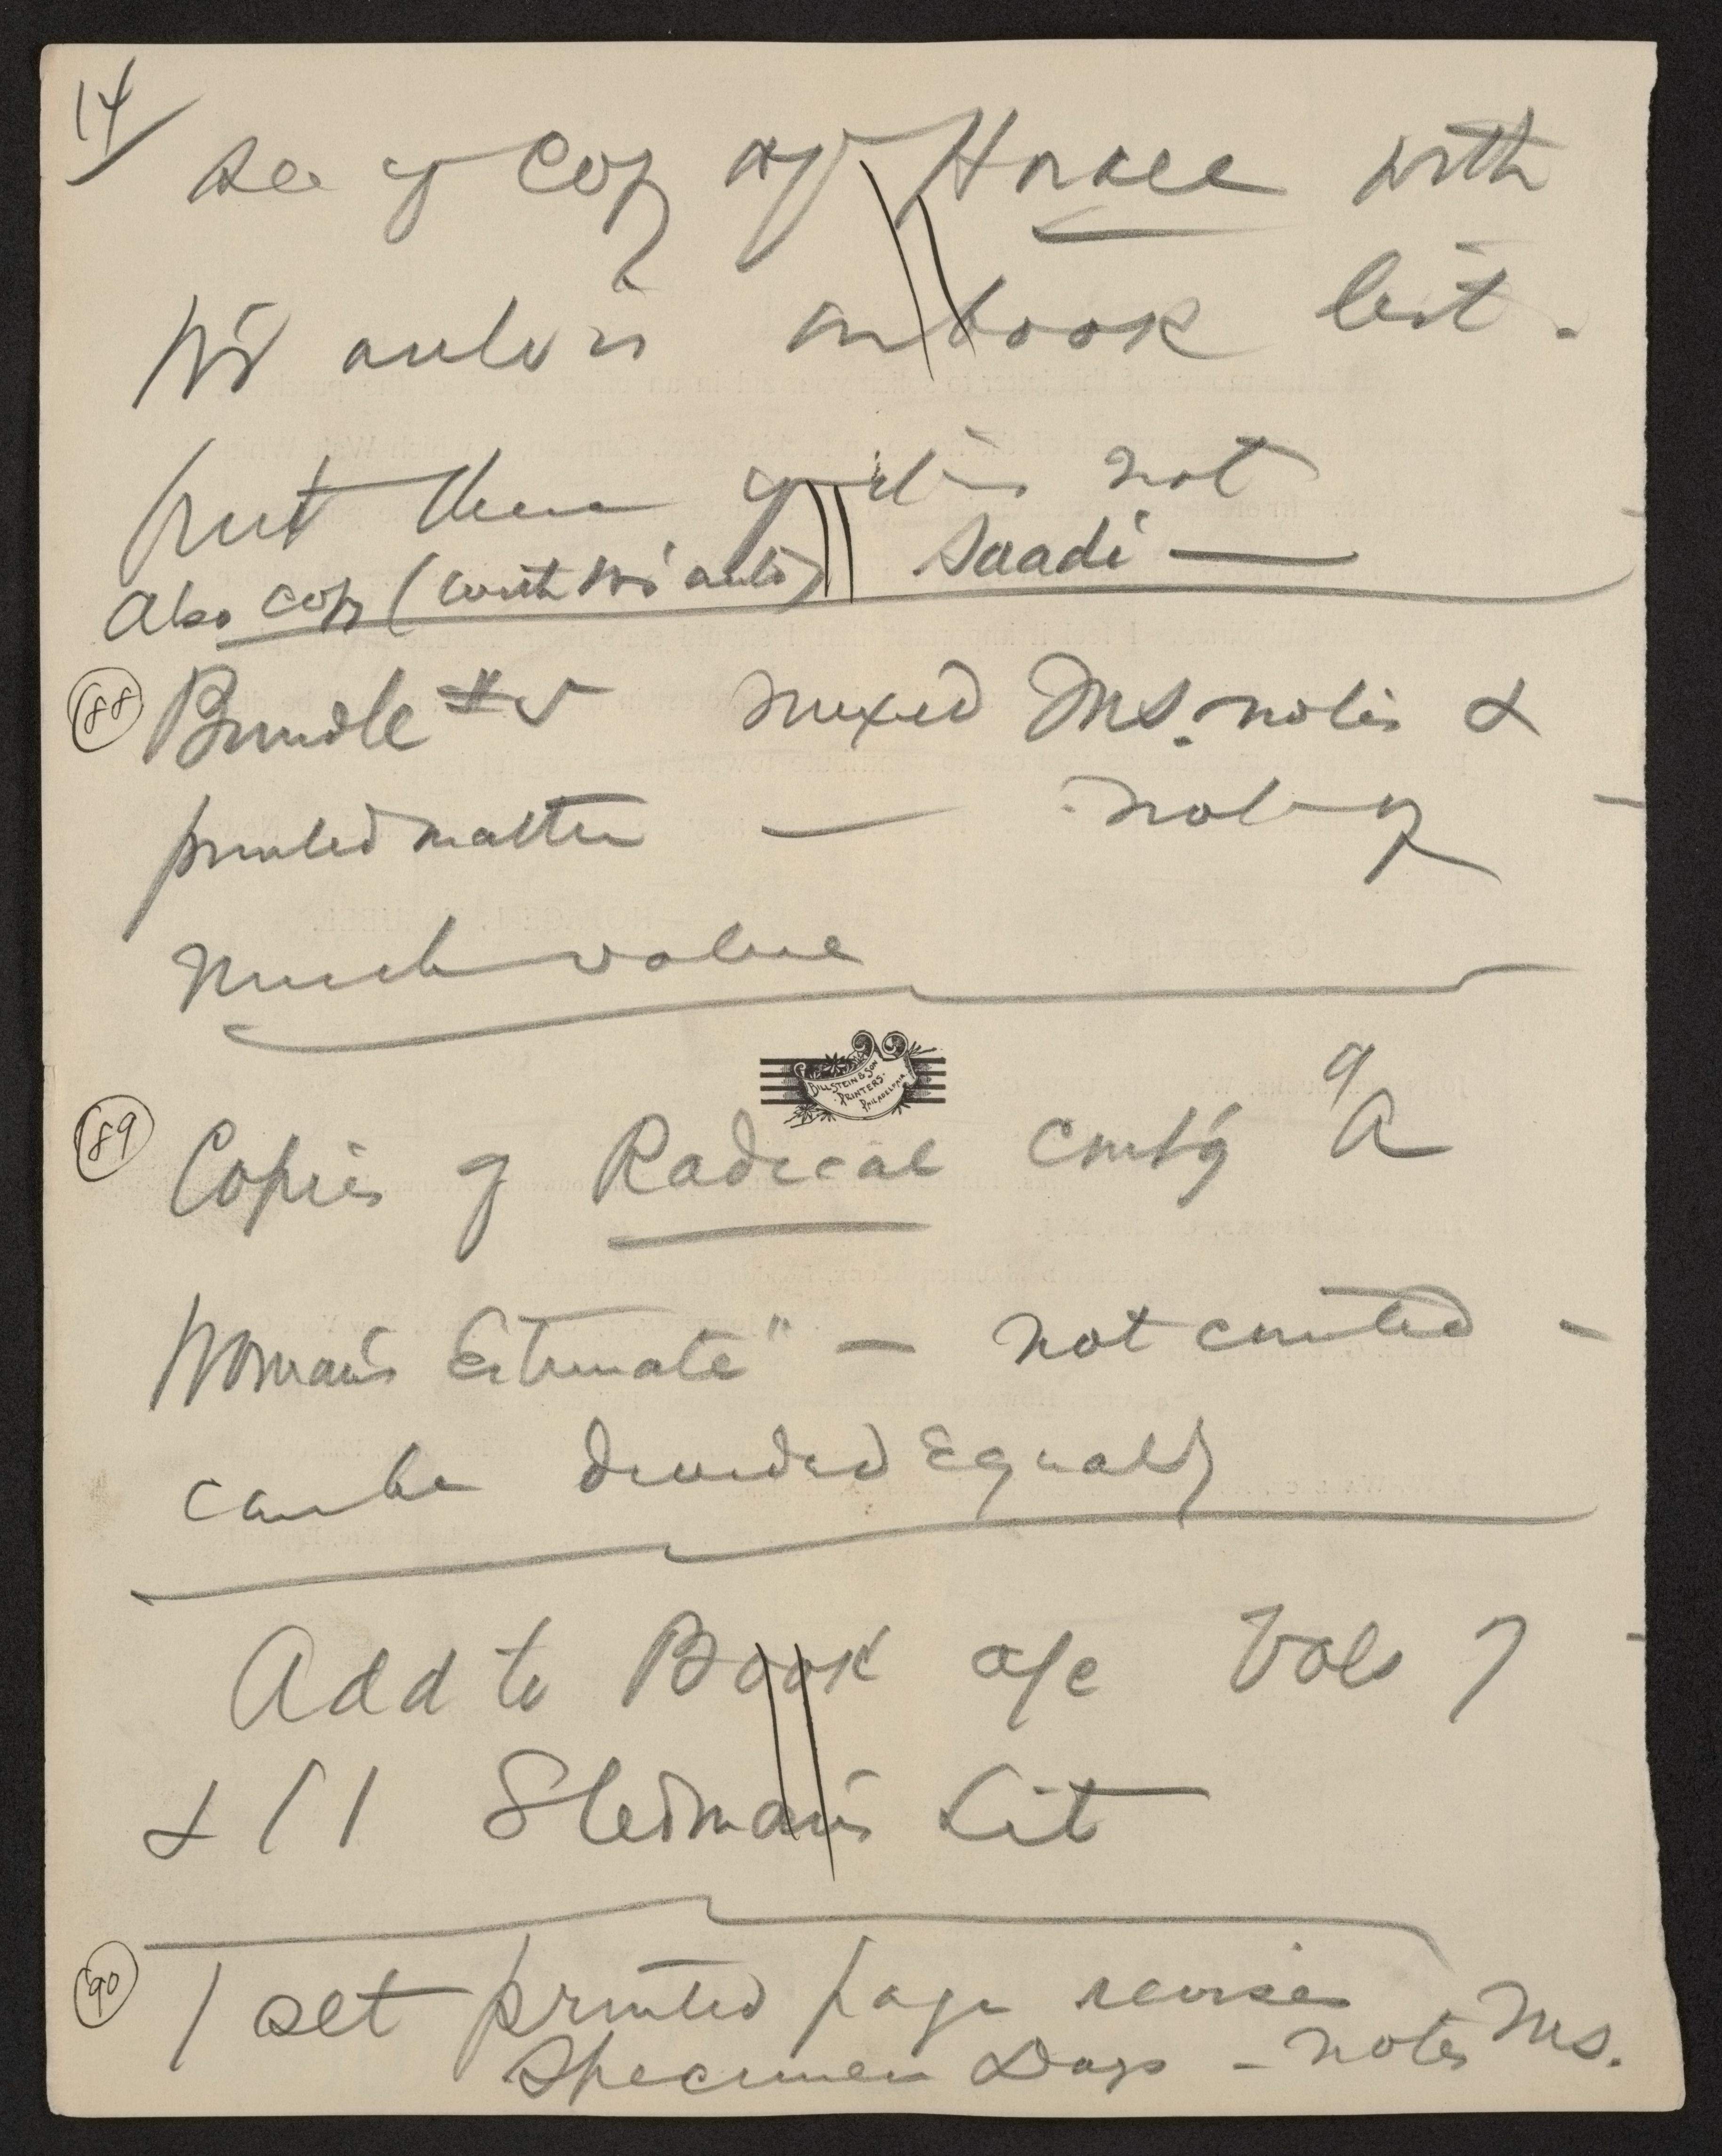 14/
See if Copy of Horace with
W's auto is on book list.
put them if it is not
Also copy (with W's auto) Saadi —
(88) Bundle #5 mixed Ms. notes &
printed matter — not of —
much value
BILLSTEIN & SON
PRINTERS.
PHILADELPHIA
(89) Copies of Radical cont'g "A
Woman's Estimate" — not counted —
can be divided Equally
Add to Book a/c Vols 7
& 11 Stedman's Lit
(90) 1 set printed page revises
Specimen Days - notes Ms.